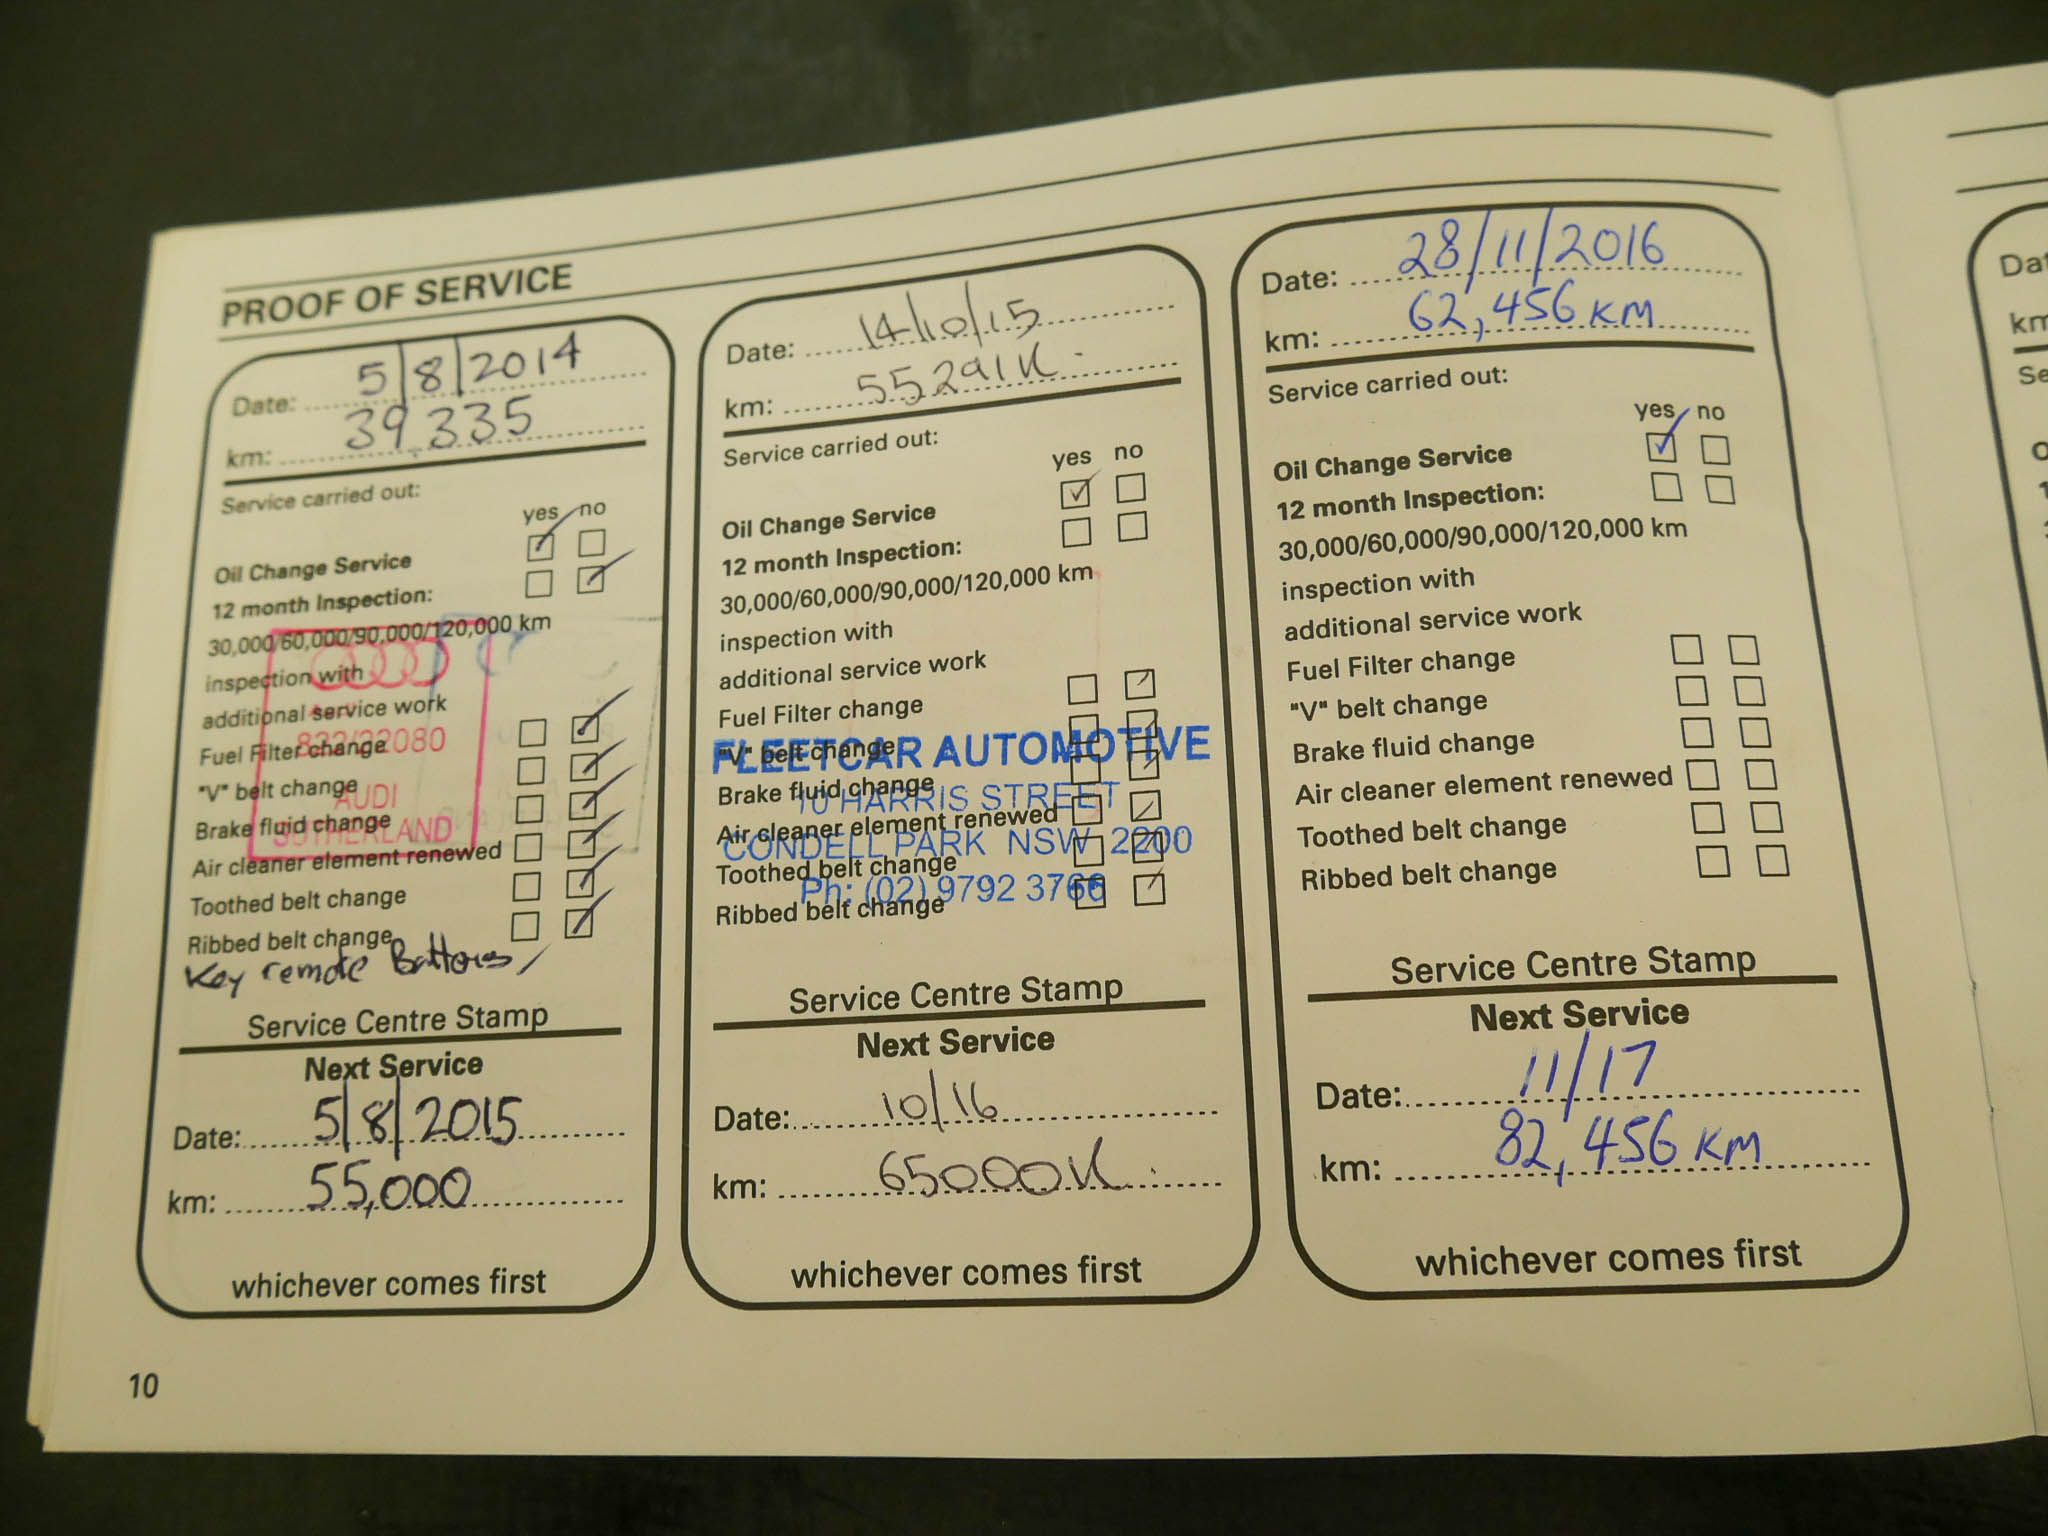 PROOF OF SERVICE
Date: 5/8/2014
km: 39,335
Service carried out:
yes no
Oil Change Service
12 month Inspection:
30,000/60,000/90,000/120,000 km
inspection with
additional service work
Fuel Filter change
"V" belt change
Brake fluid change
Air cleaner element renewed
Toothed belt change
Ribbed belt change
22080
AUDI
SUTHERLAND
Key remote
Service Centre Stamp
Next Service
Date: 5/8/2015
km: 55,000
whichever comes first
Date: 14/10/15
km: 55291K
Service carried out:
yes no
Oil Change Service
12 month Inspection:
30,000/60,000/90,000/120,000 km
inspection with
additional service work
Fuel Filter change
"V" belt change
Brake fluid change
Air cleaner element renewed
Toothed belt change
Ribbed belt change
FLEETCAR AUTOMOTIVE
10 HARRIS STREET
CONDELL PARK NSW 2200
Ph: (02) 9792 3766
Service Centre Stamp
Next Service
Date: 10/16
km: 65000K
whichever comes first
Date: 28/11/2016
km: 62,456 KM
Service carried out:
yes no
Oil Change Service
12 month Inspection:
30,000/60,000/90,000/120,000 km
inspection with
additional service work
Fuel Filter change
"V" belt change
Brake fluid change
Air cleaner element renewed
Toothed belt change
Ribbed belt change
Service Centre Stamp
Next Service
Date: 11/17
km: 82,456 KM
whichever comes first
10